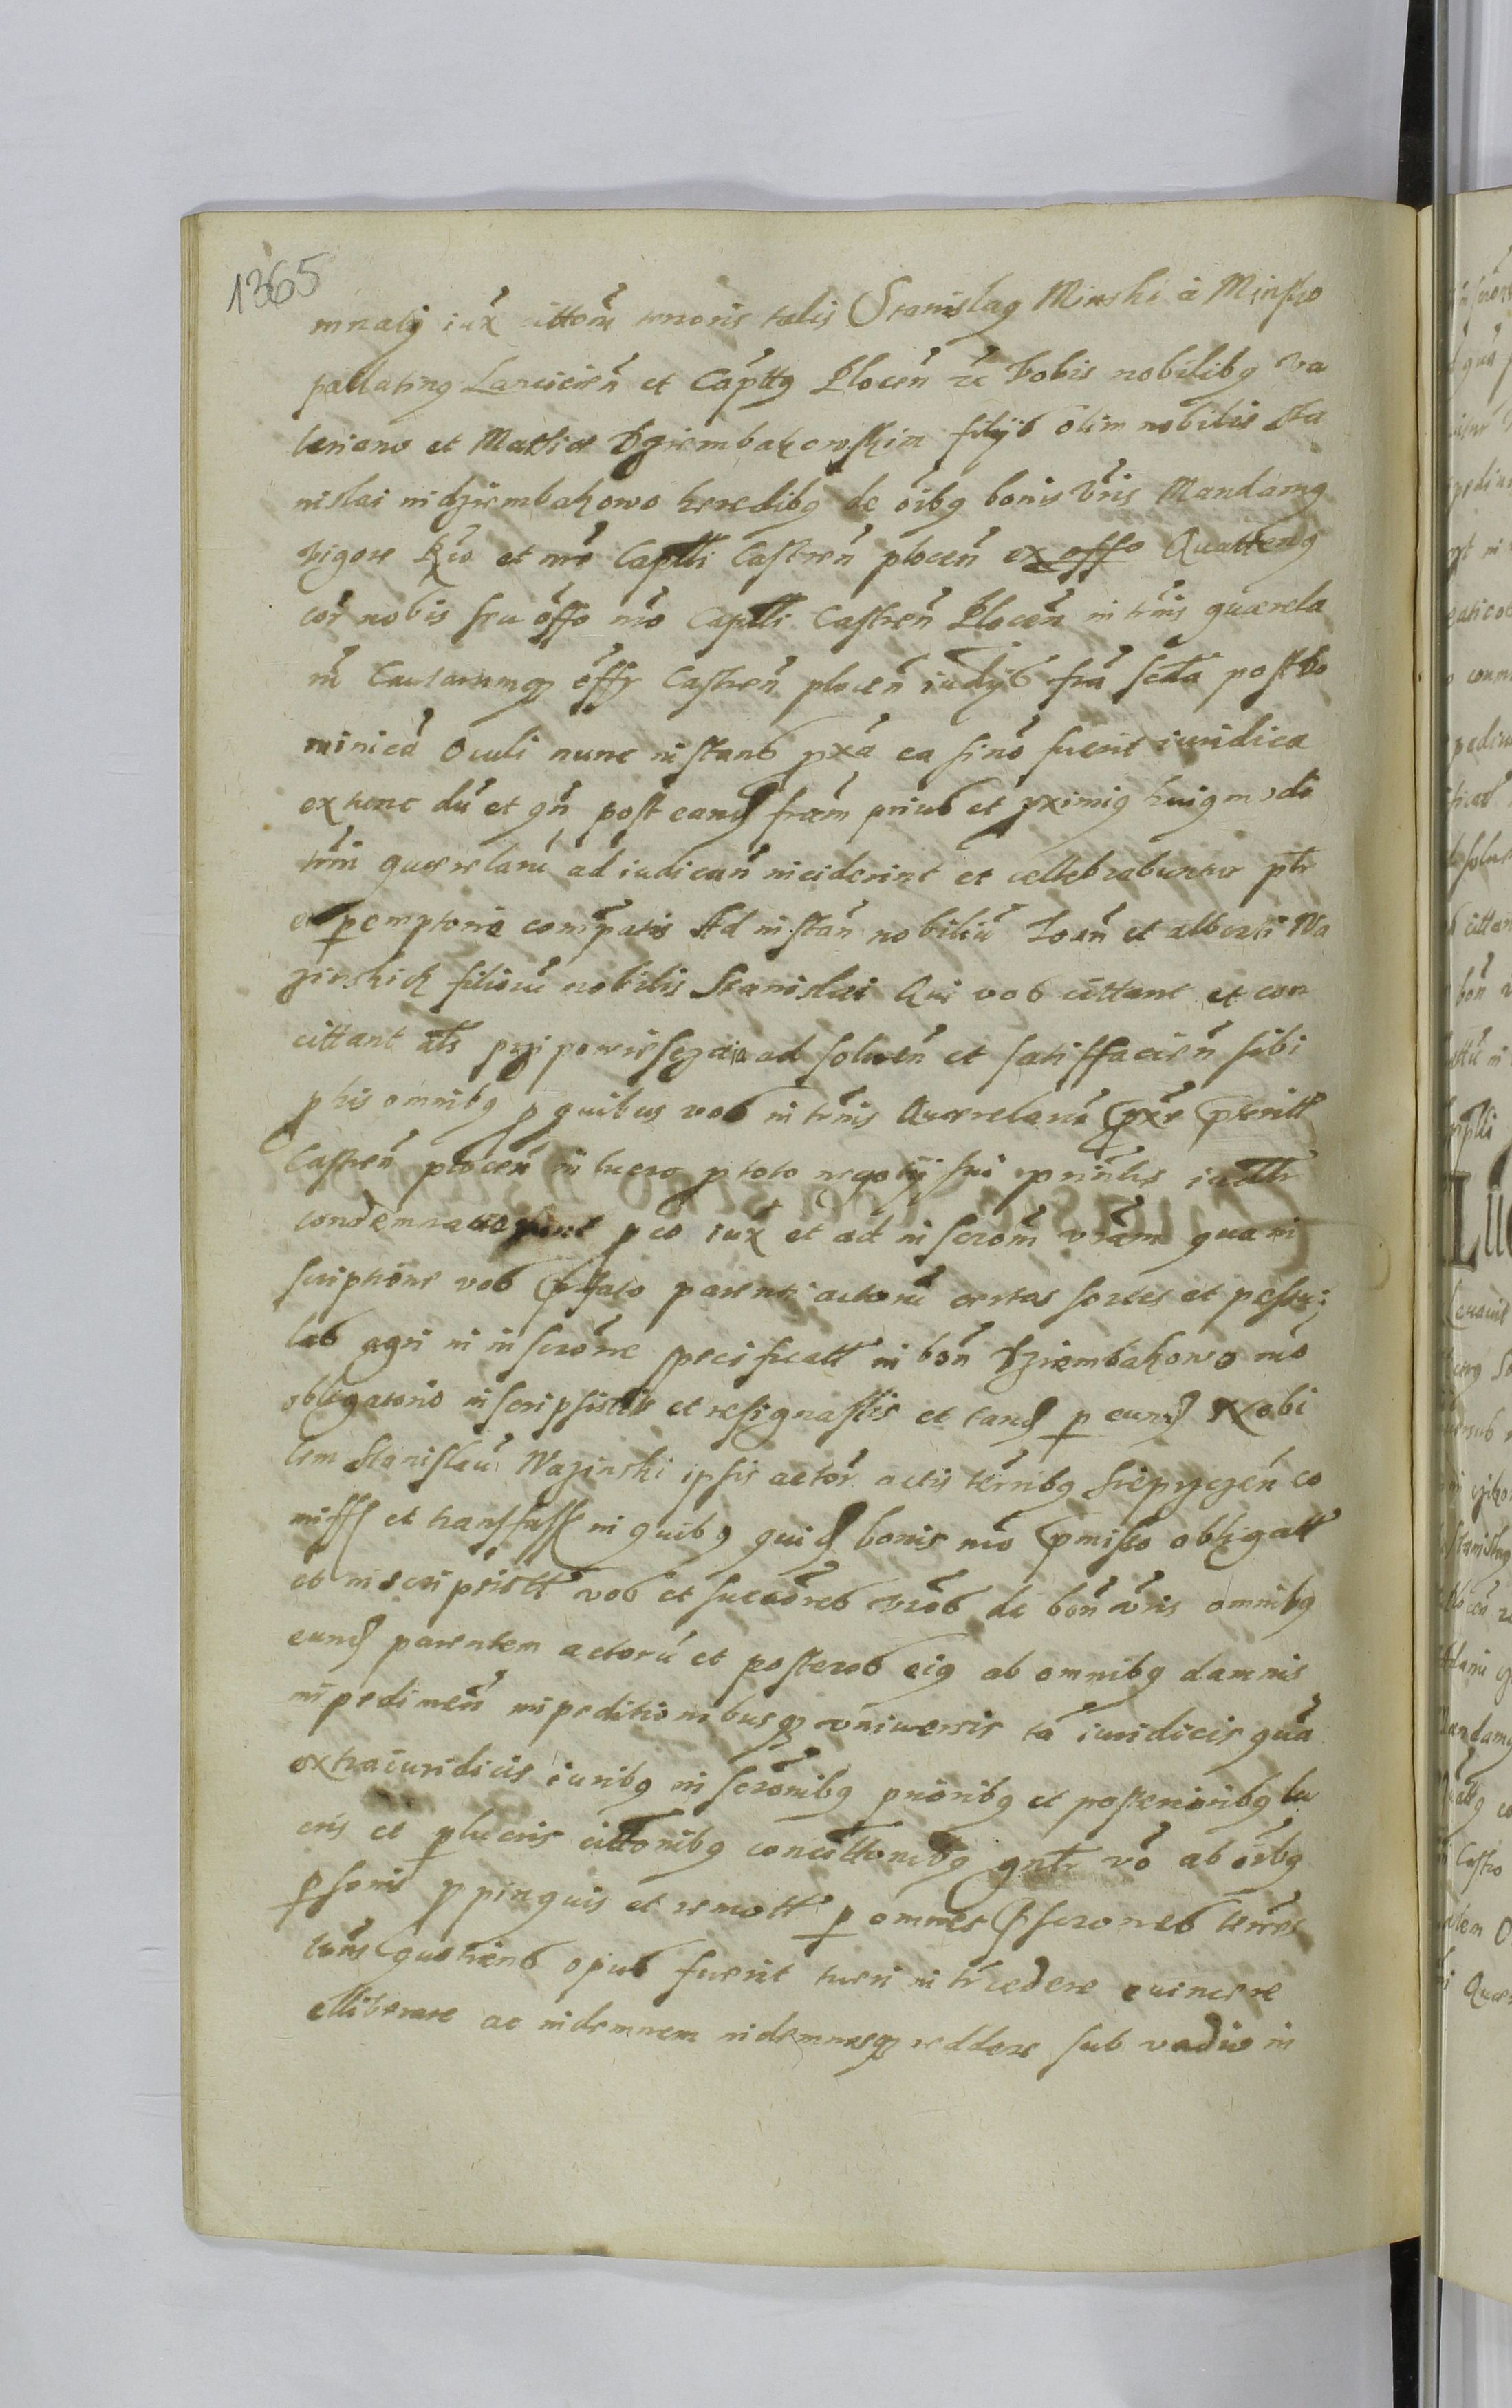 1365
mnatij iux cittoem tenoris talis Stanislaus Minski à Minsko
pallatinus Lanciciēn et Capttus Plocēn rc Vobis nobilibus Va
leriano et Mathiae Dziembakowskim filijs olim nobilis Sta
nislai in dziembakowo heredibus de oibus bonis Vris Mandamus
vigore Rio et nro Caplli Castren plocen ex offo Quattenus
cor nobis seu offo nro Capttli Castren Plocen in trnis quærela
rū Causarumq offy Castren plocen iudijs fra scda post do
minicā Oculi nunc instans pxa ea si no fuerit iuridica
extunc dū et qn post eand fram prius et pximius huiusmodi
trni quærelarū ad iudican inciderint et cellebrabuntur ptr
et peremptorie compatis Ad instan nobiliū Joān et alberti Wa
zinskich filiorū nobilis Stanislai Qui vos cittant et con
cittant als przipowiesczaia ad soluen et satisffacien sibi
p his omnibus p quibus vos in trnis Quærelarū pxe pterit
Castren plocen in lucro p toto negotij sui principalis
condemnat p eo iux et ad inscroem vram qua in
scriptione vos pfato parenti actorū certas sortes et pessu
las agri in inscrone specificatt in bon Dziembakowo mo
obligatorio inscripsistis et resignastis et tand p eund Nobi
lem Stanislaū Wazinski ipsis actor actis ternibus Sieprzczen co
miss et transfuss in quibus quid bonis mo pmisso obligatt
et inscripsistt vos et succores vros de bon vris omnibus
eund parentem actorū et posteros eius ab omnibus damnis
impedimen impeditionibusq vniuersis tā iuridicis quā
extraiuridicis iuribus inscronibus prioribus et posterioribus lu
cris et plucris cittonibus concittonibus gntr vo ab oibus
psonis ppinquis et remott p omnes pscrones terres
totiens quotiens opus fuerit tueri intrcedere euincere
elliberare ac indemnem indemnesq reddere sub vadio in